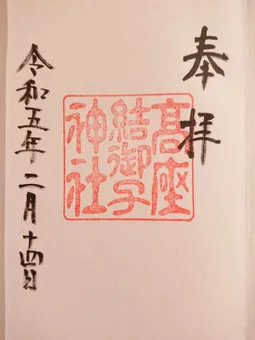 奉拝
髙座
結御子
神社
令和五年二月十四日